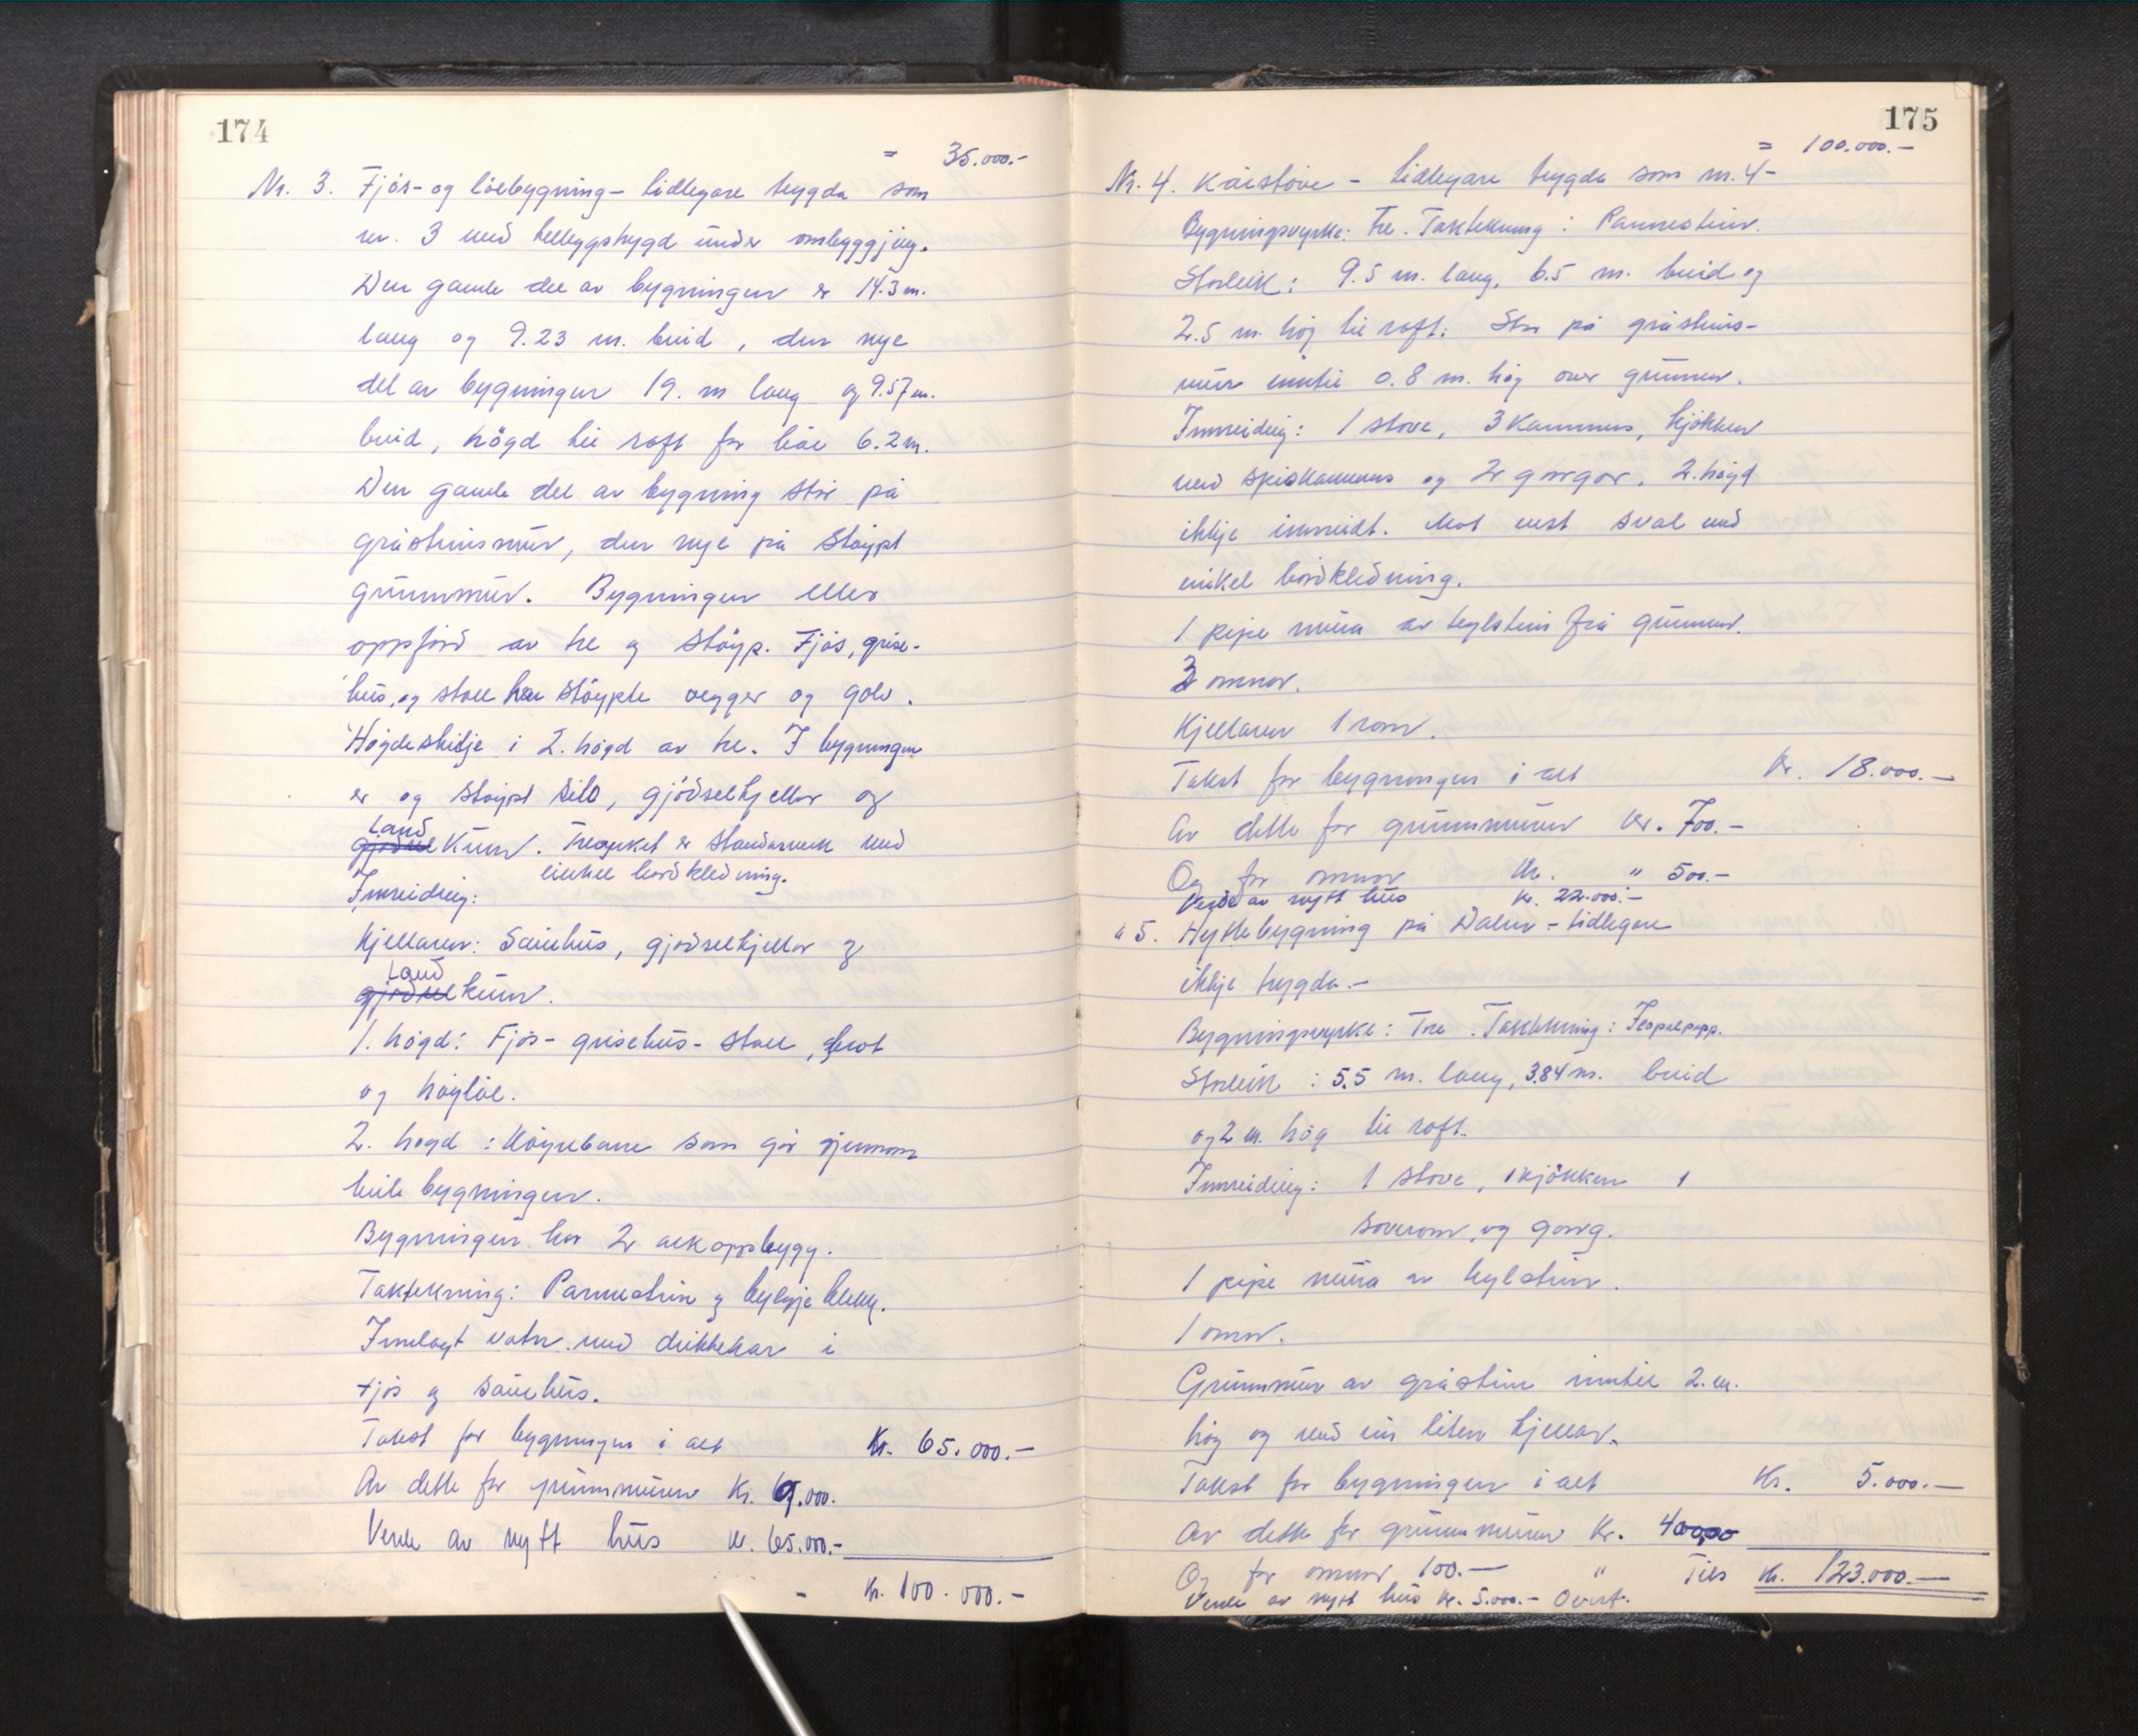 174
= 35.000.-
Nr. 3. Fjøs- og löebygning - tidlegare trygda som
nr. 3 med tilleggstrygd under ombyggjing.
Den gamle del av bygningen er 14.3 m.
lang og 9.23 m. breid, den nye
del av bygningen 19. m lang og 9.57 m.
breid, högd til raft for båe 6.2 m.
Den gamle del av bygning står på
gråsteinsmur, den nye på støypt
grunnmur. Bygningen elles
oppförd av tre og støyp. Fjøs, grise-
hus, og stall har støypte vegger og golv.
Högdeskilje i 2. högd av tre. I bygningen
er og støypt silo, gjødselkjellar og
land
gjødsel kum. Treverket er standarverk med
einkel bordkledning.
Innreiing:
Kjellaren: Sauehus, gjødselkjellar og
land
gjødsel kum.
1. högd: Fjös- grisehus- stall,
og höyløe.
2. høgd: Köyrebane som går gjennom
heile bygningen.
Bygningen har 2 arkoppbygg.
Taktekning: Pannestein og bylgjeblekk.
Innlagt vatn med drikkekar i
fjös og sauehus.
Takst for bygningen i alt Kr. 65.000.-
Av dette for grunnmuren Kr. 6.000.
Verde av nytt hus kr. 65.000.-
- Kr. 100.000.-
175
= 100.000.-
Nr. 4. Kårstove - tidlegare trygda som nr. 4 -
Bygningsvyrke: Tre. Taktekning: Pannestein.
Storleik: 9.5 m. lang, 6.5 m. breid og
2.5 m. høg til raft. Står på gråsteins-
mur inntil 0.8 m. høg over grunnen.
Innreiding: 1 stove, 3 kammers, kjökken
med spiskammers og 2 gangar. 2. högd
ikkje innreidt. Mot vest sval med
enkel bordkledning.
1 pipe mura av teglstein frå grunnen.
3 omnar.
Kjellaren 1 rom.
Takst for bygningen i alt Kr. 18.000.-
Av dette for grunnmuren kr. 700.-
Og for omnar Kr. " 500.-
Verde av nytt hus kr. 22.000.-
" 5. Hyttebygning på Dalen - tidlegare
ikkje trygda.-
Bygningsvyrke: Tre. Taktekning:
Storleik: 5.5 m. lang, 3.84 m. breid
og 2 m. høg til raft.
Innreiding: 1 stove, 1 kjökken 1
soverom, og gang.
1 pipe mura av teglstein.
1 omn.
Grunnmur av gråstein inntil 2. m.
høg og med ein liten kjellar.
Takst for bygningen i alt Kr. 5.000.-
Av dette for grunnmuren Kr. 400,00
Og for omnar 100.- " Tils Kr. 123.000.-
Verde av nytt hus kr. 5.000.- Overf.